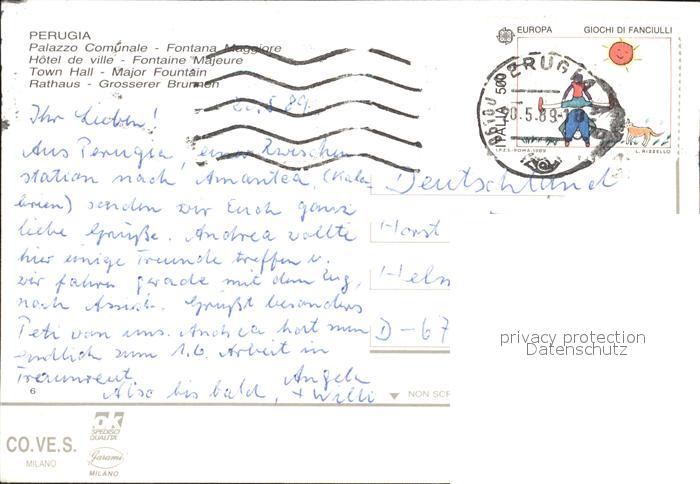 PERUGIA
Palazzo Comunale - Fontana Maggiore
Hôtel de ville - Fontaine Majeure
Town Hall - Major Fountain
Rathaus - Grosserer Brunnen
EUROPA GIOCHI DI FANCIULLI
ITALIA 500
PERUGIA
20.5.89
I.P.Z.S.-ROMA-1989 L. RIZZELLO
20.5.89
Ihr Lieben!
Aus Perugia, einer Zwischen
station nach Amantea (Kala-
brien) senden wir Euch ganz
liebe Grüße. Andrea wollte
hier einige Freunde treffen u.
wir fahren gerade mit dem Zug
nach Assisi. Grüßt besonders
Peti von uns. Andrea hat nun
endlich zum 1.6. Arbeit in
Traunreut.
Also bis bald, Angela
+ Willi
Deutschland
Horst
Helm
D-67
privacy protection
Datenschutz
6
NON SCR
CO.VE.S.
MILANO
OK
SPEDISCI
QUALITÀ
Garami
MILANO